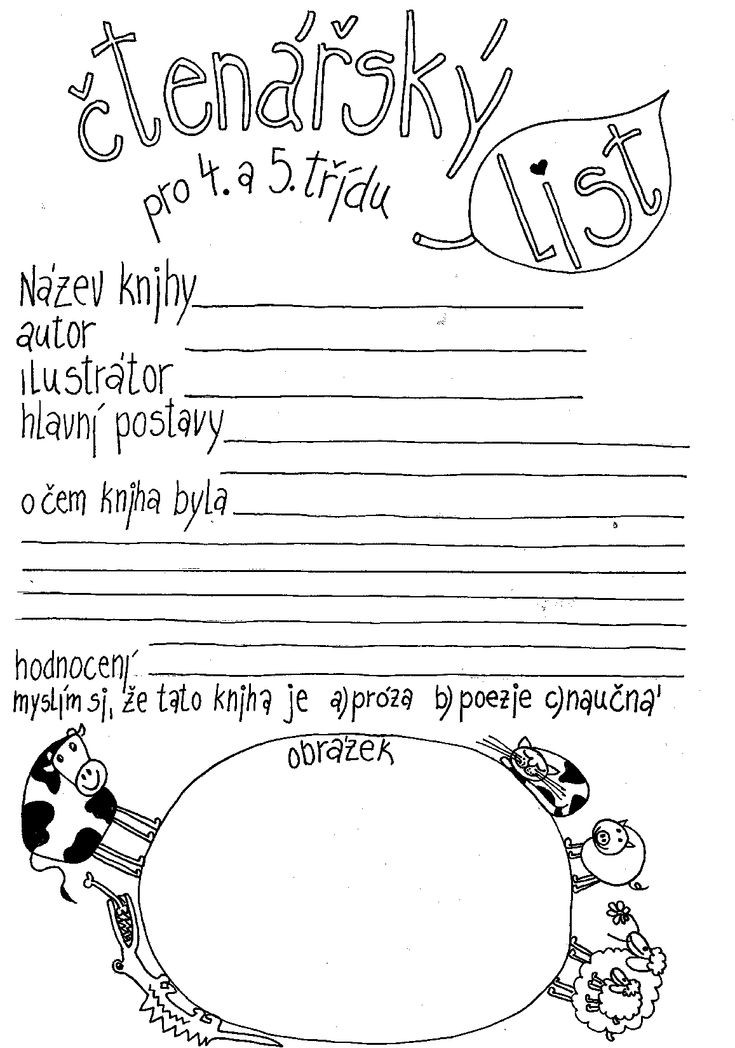 čtenářský
list
pro 4. a 5. třídu
Název knihy
autor
ilustrátor
hlavní postavy
o čem kniha byla
hodnocení
myslím si, že tato kniha je a) próza b) poezie c) naučná
obrázek